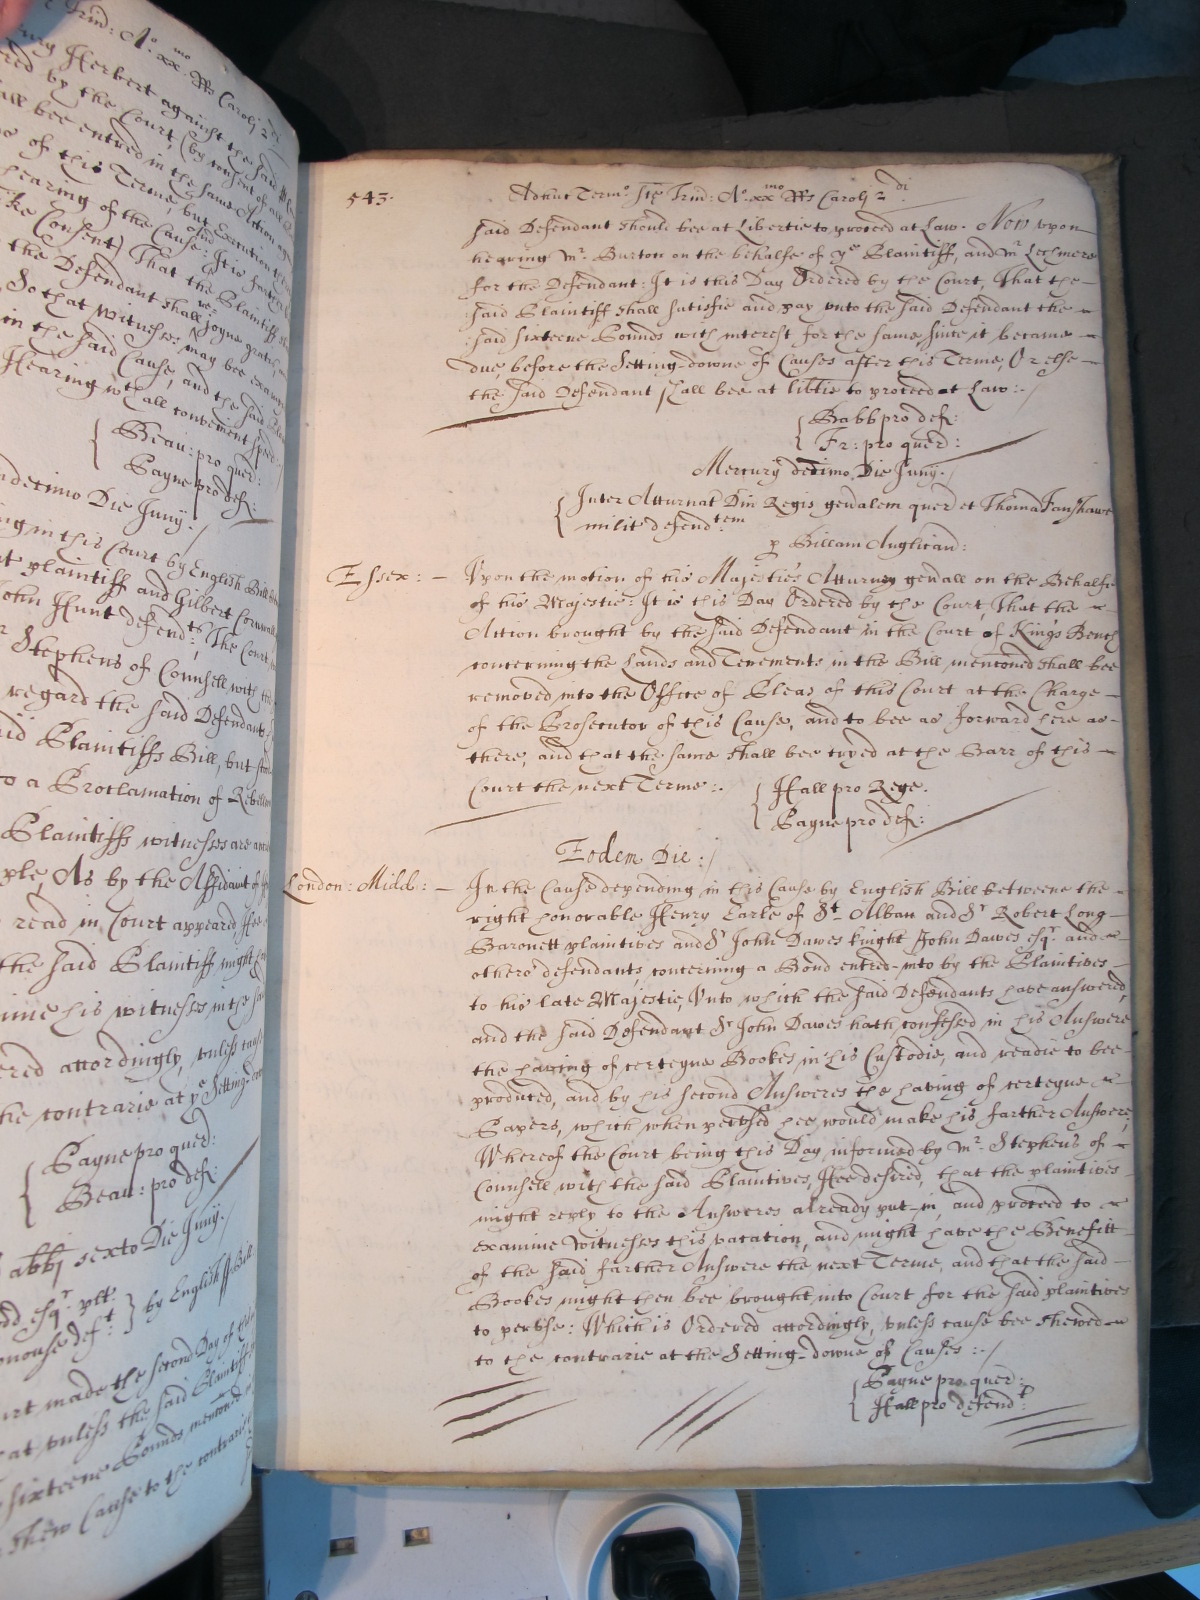 Trin: Ao. xxmo. Rs Caroli 2di
Herbert against the said
by the Court, (by consent of all
all bee entred in the same Action
of this Terme, but Execution
hearing of the Cause: It is further
like Consent) That the Plaintiff
the Defendant shall joyne gratis,
So that witnesses may bee exam
in the said Cause, and the said
Hearing wth all convenient speed:/
Beau: pro quer:
Payne pro def:
decimo Die Junij:/
ing in this Court by English Bill
plaintiff and Gilbert Cornwall
John Hunt defendts; The Court
Stephens of Counsell with the
regard the said Defendants
said Plaintiffs Bill, but stood
to a Proclamation of Rebellion
Plaintiffs witnesses are
ple, As by the Affidavit of
read in Court appeared Hee
the said Plaintiff might
ine his witnesses in the
ered accordingly, unless cause
the contrarie at ye Setting-downe
Payne pro quer:
Beau: pro def:
abbi sexto Die Junij:/
esqr. plt.
deft. by English Bill
made the second Day of
at unless the said Plaintiff
sixteene Pounds mentoned
shew Cause to the contrarie
543.
Adhuc Termo. Sce Trin: Ao. xxmo Rs Caroli 2di.
said Defendant should bee at Libertie to proceed at Law. Now upon
hearing Mr. Burton on the behalfe of ye Plaintiff, and Mr Lechmere
for the Defendant: It is this Day Ordered by the Court, That the
said Plaintiff shall satisfie and pay unto the said Defendant the
said sixteene Pounds with interest for the same, since it became
due, before the Setting-downe of Causes after this Terme, Or else
the said Defendant shall bee at libtie to proceed at Law:./
Babb pro def:
Fr: pro quer:
Mercurij decimo Die Junij:/
Inter Atturnat Dni Regis genalem quer et Thoma Fanshawe
milit defendtem
p Billam Anglican:
Essex: Upon the motion of his Majesties Atturney genall on the Behalfe
of his Majestie: It is this Day Ordered by the Court, That the
Action brought by the said Defendant in the Court of Kings Bench
concerning the Lands and Tenements in the Bill mentoned shall bee
removed into the Office of Pleas of this Court at the Charge
of the Prosecutor of this Cause, and to bee as forward here as
there, and that the same shall bee tryed at the Barr of this
Court the next Terme:.
Hall pro Rege.
Payne pro def:
Eodem Die:/
London: Midd: In the Cause depending in this Cause by English Bill betweene the
right honorable Henry Earle of St. Alban and Sr Robert Long
Baronett plaintives and Sr John Dawes knight John Dawes esqr. and
others defendants, concerning a Bond entred-into by the Plaintives
to his late Majestie, Unto which the said Defendants have answered,
and the said Defendant Sr John Dawes hath confessed in his Answere
the having of certeyne Bookes in his Custodie, and readie to bee
produced, and by his second Answeres the having of certeyne
Papers, which when perused hee would make his farther Answere;
Whereof the Court being this Day informed by Mr. Stephens of
Counsell with the said Plaintives, Hee desired, that the plaintives
might reply to the Answeres already put-in, and proceed to
examine Witnesses this vacation, and might have the Benefitt
of the said farther Answere the next Terme, and that the said
Bookes might then bee brought into Court for the said plaintives
to peruse: Which is Ordered accordingly, unless cause bee shewed
to the contrarie at the Setting-downe of Causes:./
Payne pro quer:
Hall pro defendt: